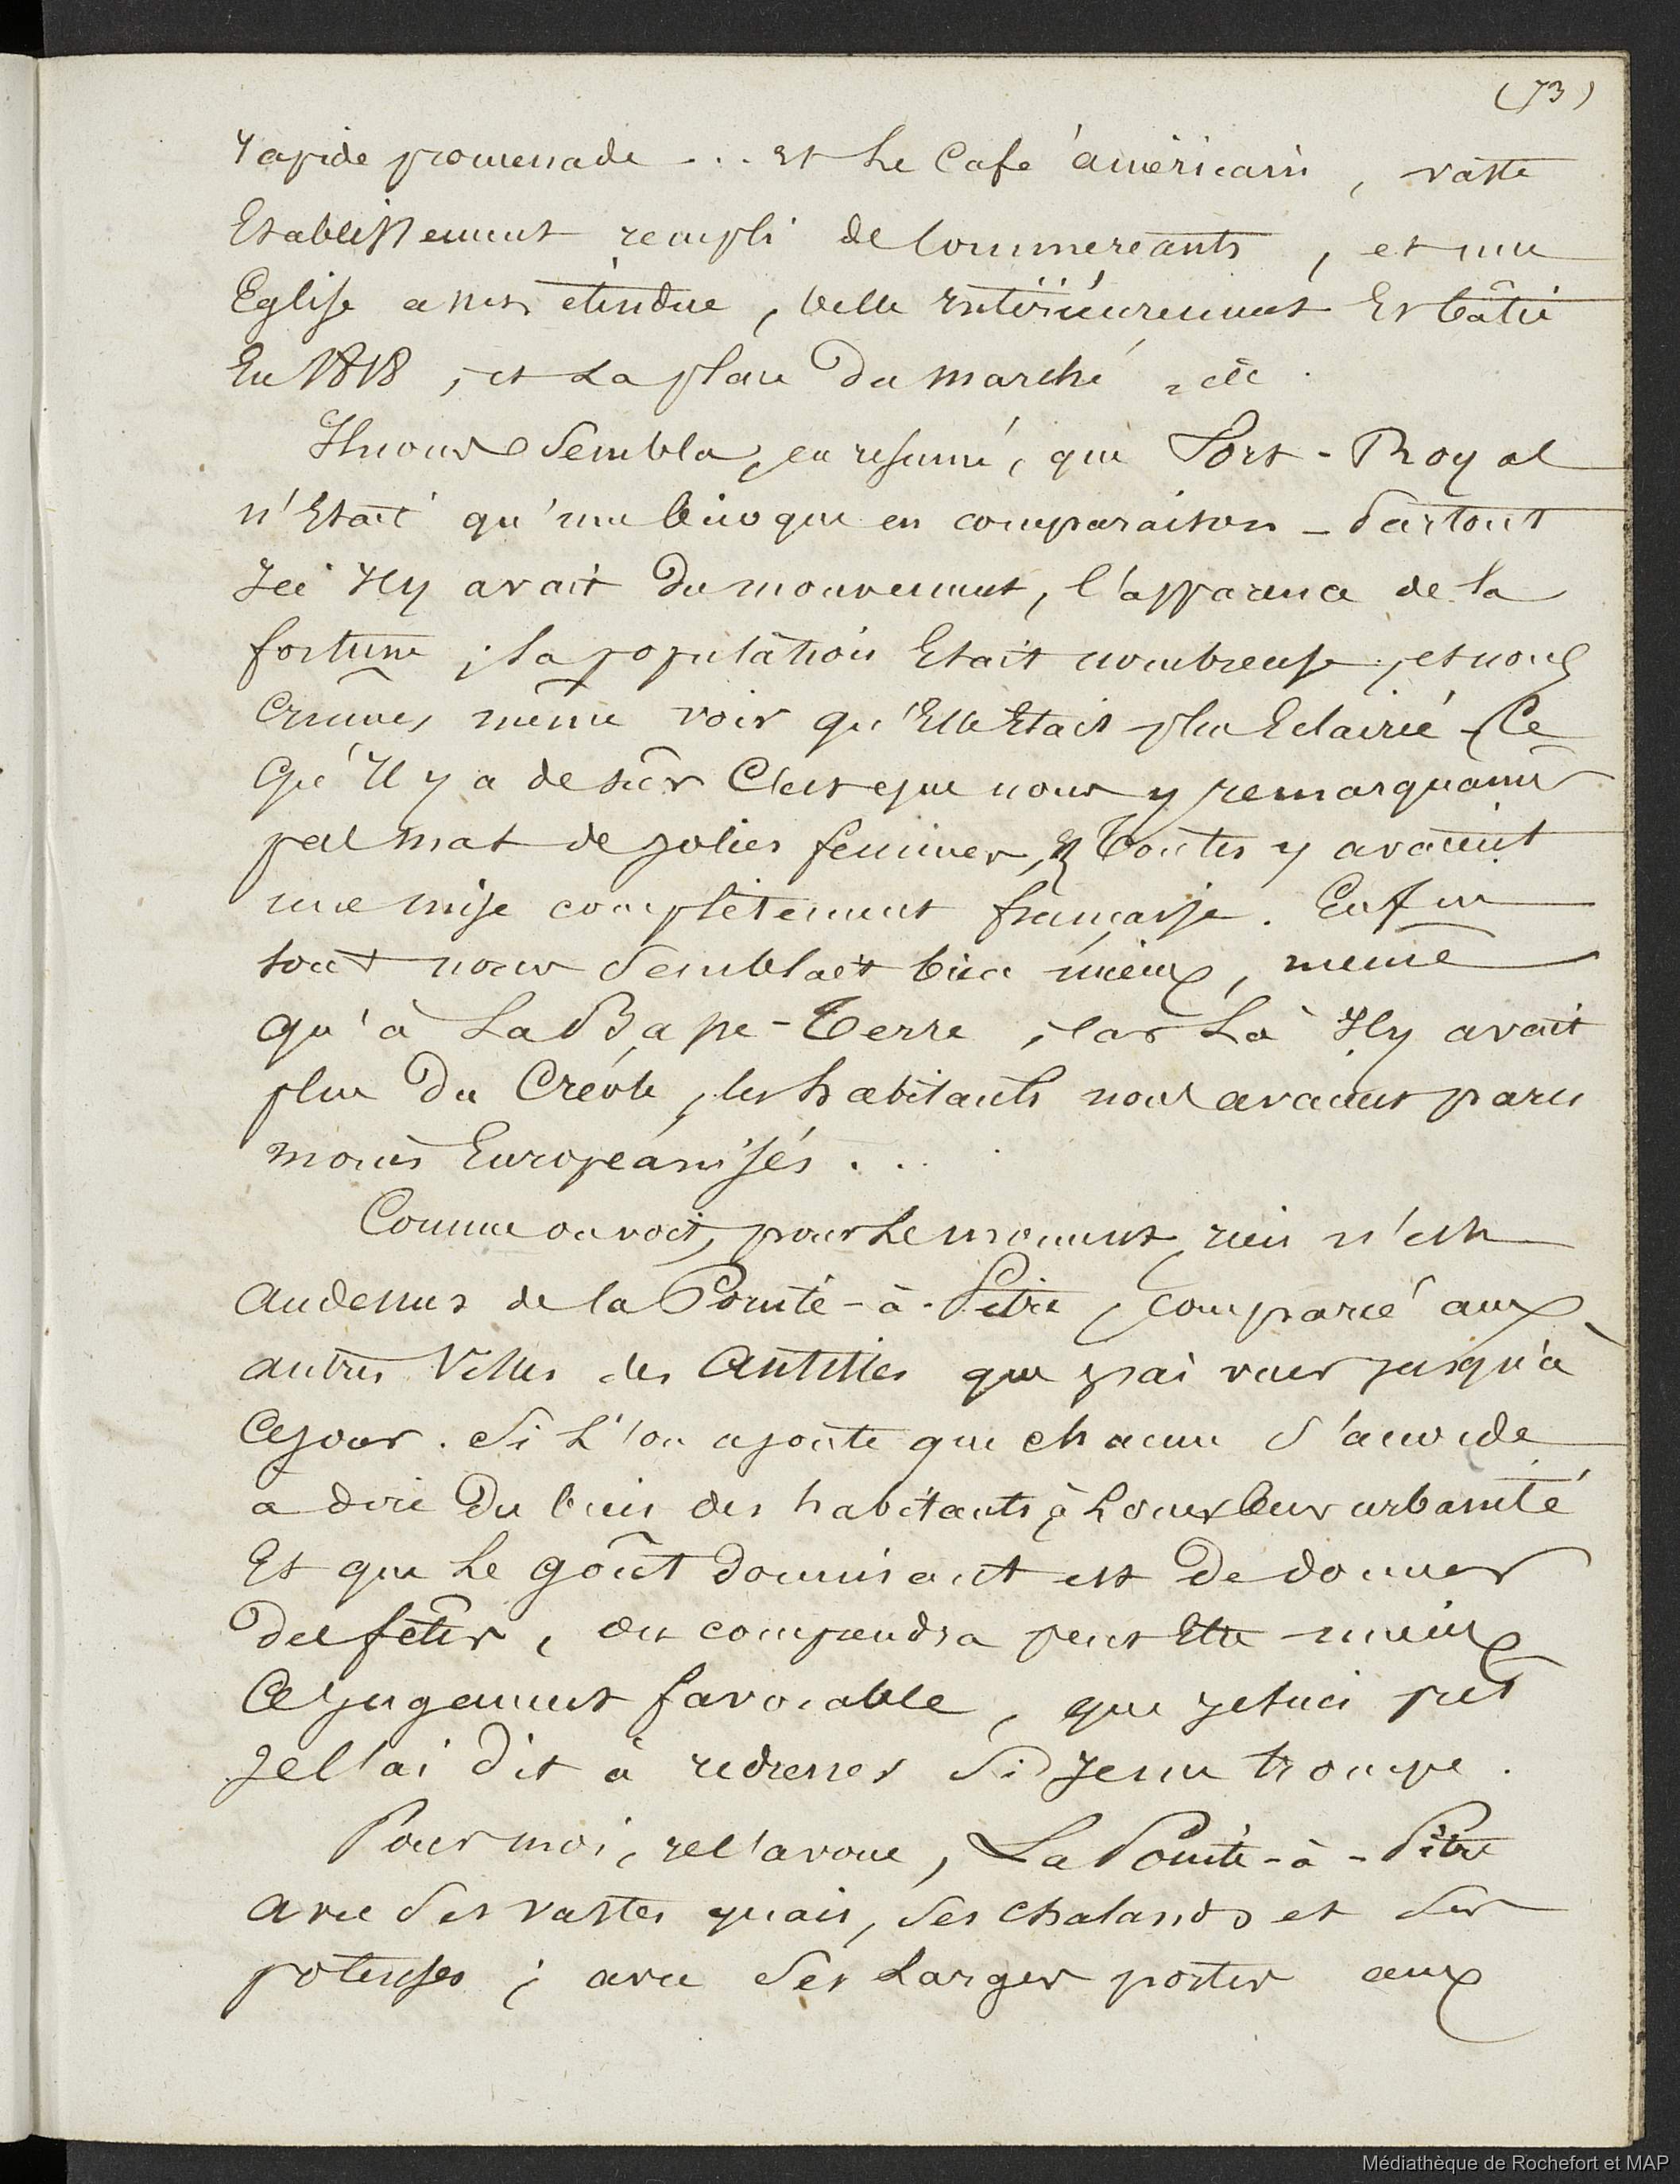 (73)
rapide promenade ... et Le Café américain, vaste
Etablissement rempli de Commerçants, et une
Eglise assez étendue, belle intérieurement Et bâtie
En 1818, et La place Du marché, etc.
Il nous Sembla, en résumé, que Fort-Royal
n'Etait qu'une bicoque en comparaison - Partout
Ici Il y avait Du mouvement, l'apparence de la
fortune ; la population Etait nombreuse, et nous
Crûmes même voir qu'Elle Etait plus Eclairée - Ce
Qu'Il y a de sûr C'est que nous y remarquâmes
pas mal de jolies femmes, & Toutes y avaient
une mise complètement française. Enfin
tout nous Semblait bien mieux, même
qu'à La Basse-Terre, car Là Il y avait
plus Du Créole, les habitants nous avaient paru
moins Européanisés...
Comme on voit, pour Le moment, rien n'est
Audessus de la Pointe-à-Pitre, comparée aux
autres Villes des Antilles que j'ai vues jusqu'à
Ce jour. Si L'on ajoute que chacun S'accorde
à dire Du bien des habitants, à Louer leur urbanité
Et que Le goût dominant est De donner
Des fêtes, on comprendra peut Etre mieux
Ce jugement favorable, que je suis prêt
Je l'ai dit à redresser Si Je me trompe.
Pour moi, je l'avoue, La Pointe-à-Pitre
avec Ses vastes quais, Ses chalands et Ses
potenses ; avec Ses Larges portes aux
Médiathèque de Rochefort et MAP